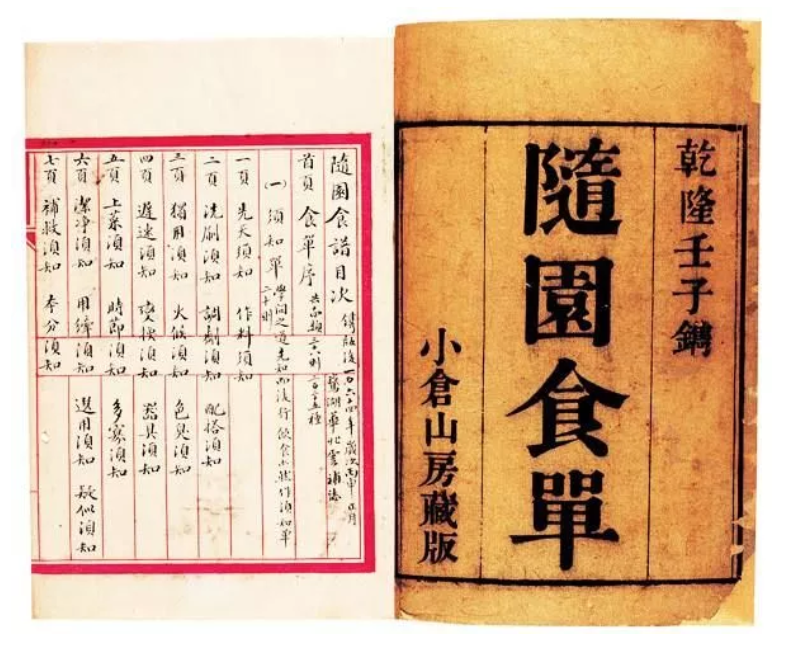 乾隆壬子鐫
隨園食單
小倉山房藏版
隨園食譜目次
鐫版後一百六十四年歲次丙申正月
鴛湖華北雲補誌
首頁 食單序
(一) 須知單
二十則
學問之道先知而後行飲食亦然作須知單
一頁 先天須知 作料須知
二頁 洗刷須知 調劑須知 配搭須知
三頁 獨用須知 火候須知 色臭須知
四頁 遲速須知 變換須知 器具須知
五頁 上菜須知 時節須知 多寡須知
六頁 潔淨須知 用縴須知 選用須知 疑似須知
七頁 補救須知 本分須知